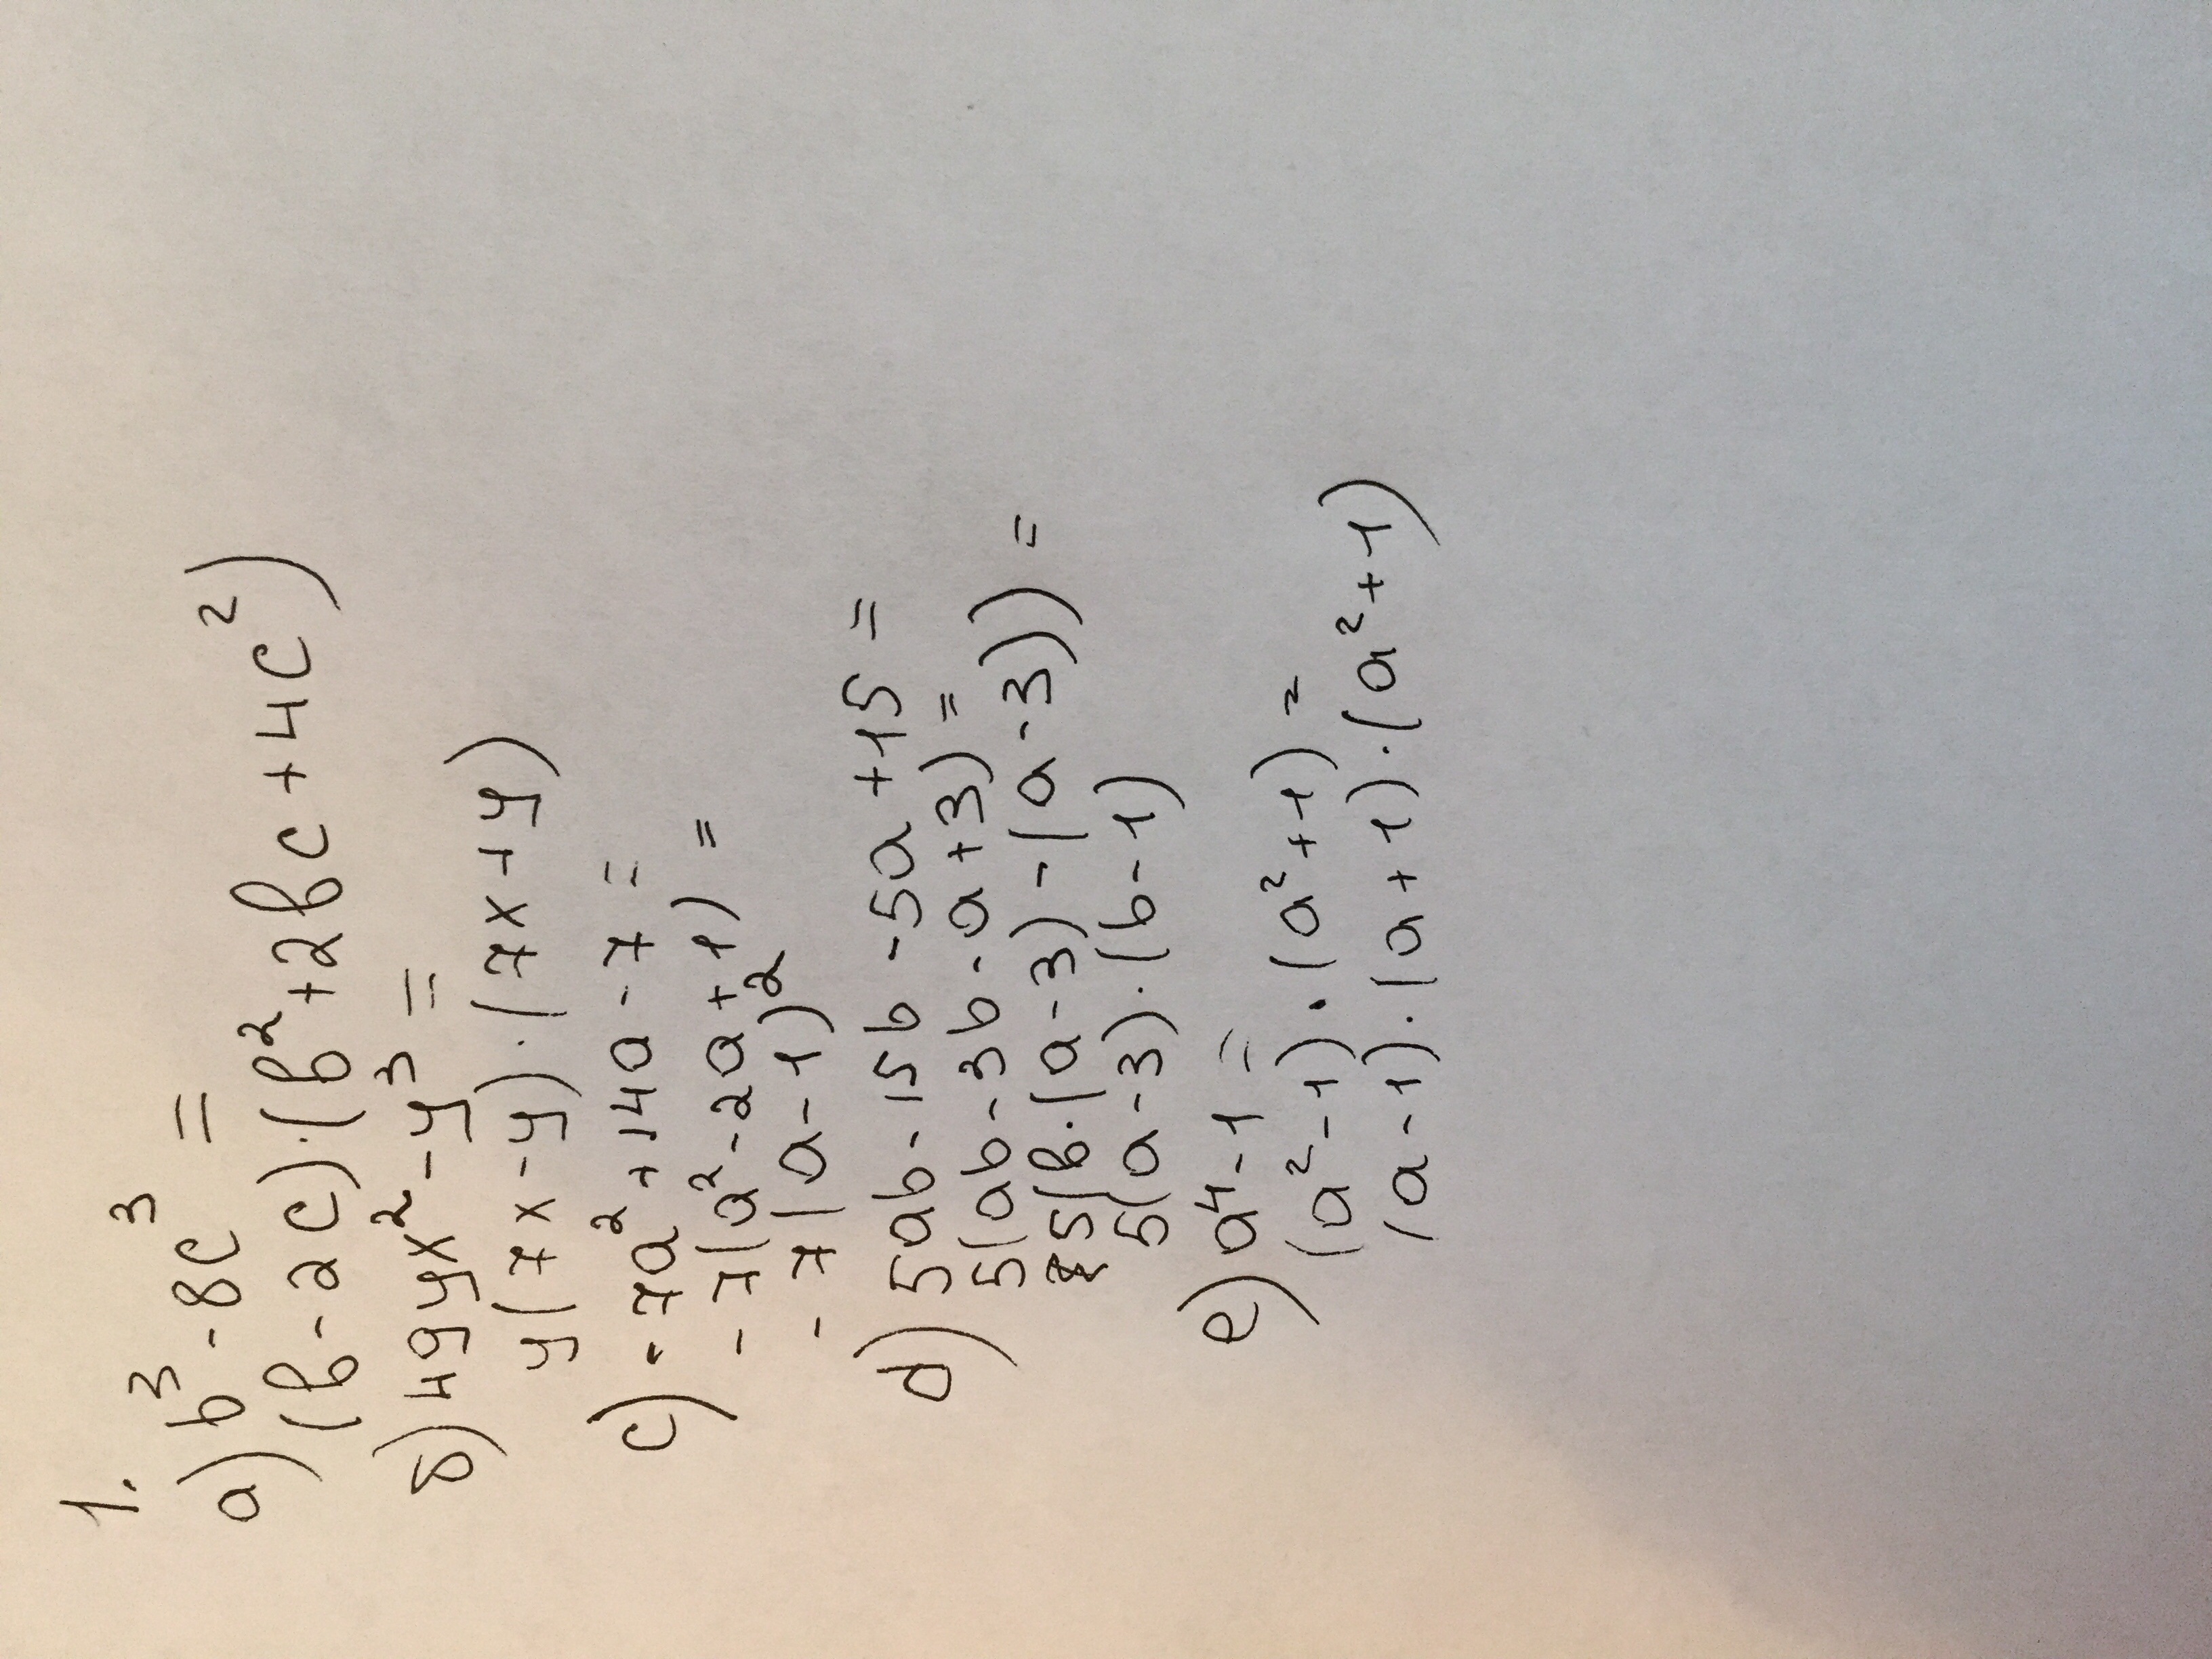 1.
a) b³ - 8c³ =
(b - 2c) · (b² + 2bc + 4c²)
б) 49yx² - y³ =
y(7x - y) · (7x + y)
c) - 7a² + 14a - 7 =
- 7(a² - 2a + 1) =
- 7(a - 1)²
d) 5ab - 15b - 5a + 15 =
5(ab - 3b - a + 3) =
5(b · (a - 3) - (a - 3)) =
5(a - 3) · (b - 1)
e) a⁴ - 1 =
(a² - 1) · (a² + 1) =
(a - 1) · (a + 1) · (a² + 1)